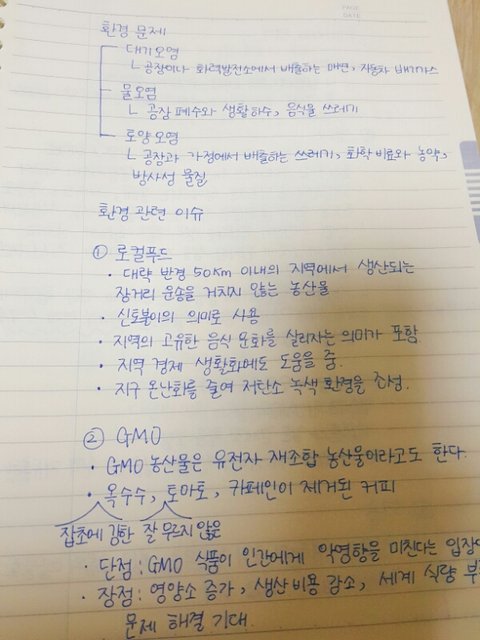 PAGE
DATE
환경 문제
대기오염
ㄴ 공장이나 화력발전소에서 배출하는 매연, 자동차 배기가스
물오염
ㄴ 공장 폐수와 생활하수, 음식물 쓰레기
토양오염
ㄴ 공장과 가정에서 배출하는 쓰레기, 화학비료와 농약,
방사성 물질
환경 관련 이슈
① 로컬푸드
· 대략 반경 50km 이내의 지역에서 생산되는
장거리 운송을 거치지 않는 농산물
· 신토불이의 의미로 사용
· 지역의 고유한 음식 문화를 살리자는 의미가 포함
· 지역 경제 생활화에도 도움을 줌.
· 지구 온난화를 줄여 저탄소 녹색 환경을 조성.
② GMO
· GMO 농산물은 유전자 재조합 농산물이라고도 한다.
· 옥수수, 토마토, 카페인이 제거된 커피
잡초에 강한 잘 무르지 않은
· 단점 : GMO 식품이 인간에게 악영향을 미친다는
· 장점 : 영양소 증가, 생산비용 감소, 세계 식량
문제 해결 기대.